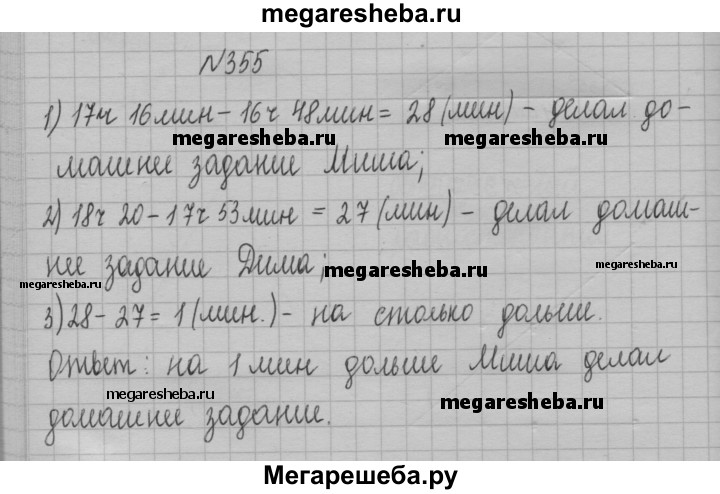 megaresheba.ru
№355
1) 17ч 16мин - 16ч 48мин = 28 (мин) - делал до-
megaresheba.ru megaresheba.ru
машнее задание Миша;
2) 18ч 20 - 17ч 53мин = 27 (мин) - делал домаш-
нее задание Дима; megaresheba.ru megaresheba.ru
megaresheba.ru
3) 28 - 27 = 1 (мин.) - на столько дольше.
Ответ: на 1 мин дольше Миша делал
megaresheba.ru megaresheba.ru
домашнее задание.
Мегарешеба.ру